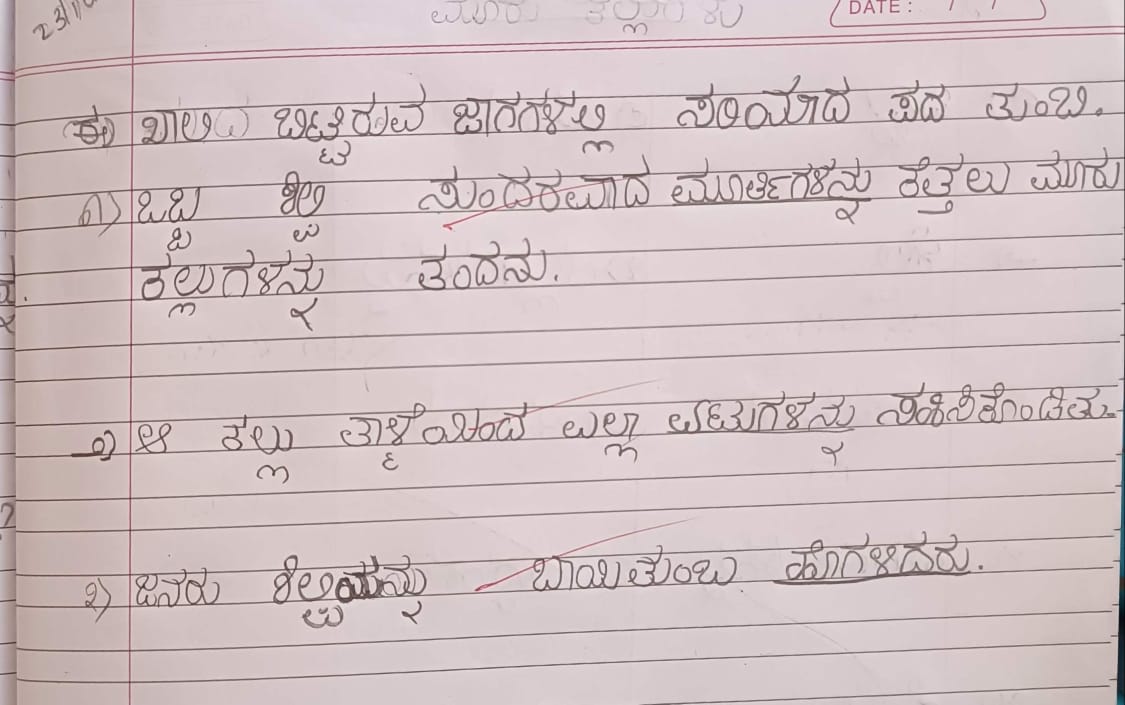 23/10
ಮೂರು ಕಲ್ಲುಗಳು
DATE: / /
ಈ) ಖಾಲಿ ಬಿಟ್ಟಿರುವ ಜಾಗಗಳಲ್ಲಿ ಸರಿಯಾದ ಪದ ತುಂಬಿ.
೧) ಒಬ್ಬ ಶಿಲ್ಪಿ ಸುಂದರವಾದ ಮೂರ್ತಿಗಳನ್ನು ಕೆತ್ತಲು ಮೂರು
ಕಲ್ಲುಗಳನ್ನು ತಂದನು.
೨) ಆ ಕಲ್ಲು ತಾಳ್ಮೆಯಿಂದ ಎಲ್ಲಾ ಏಟುಗಳನ್ನು ಸಹಿಸಿಕೊಂಡಿತು.
೩) ಜನರು ಶಿಲ್ಪಿಯನ್ನು ಬಾಯಿತುಂಬ ಹೊಗಳಿದರು.